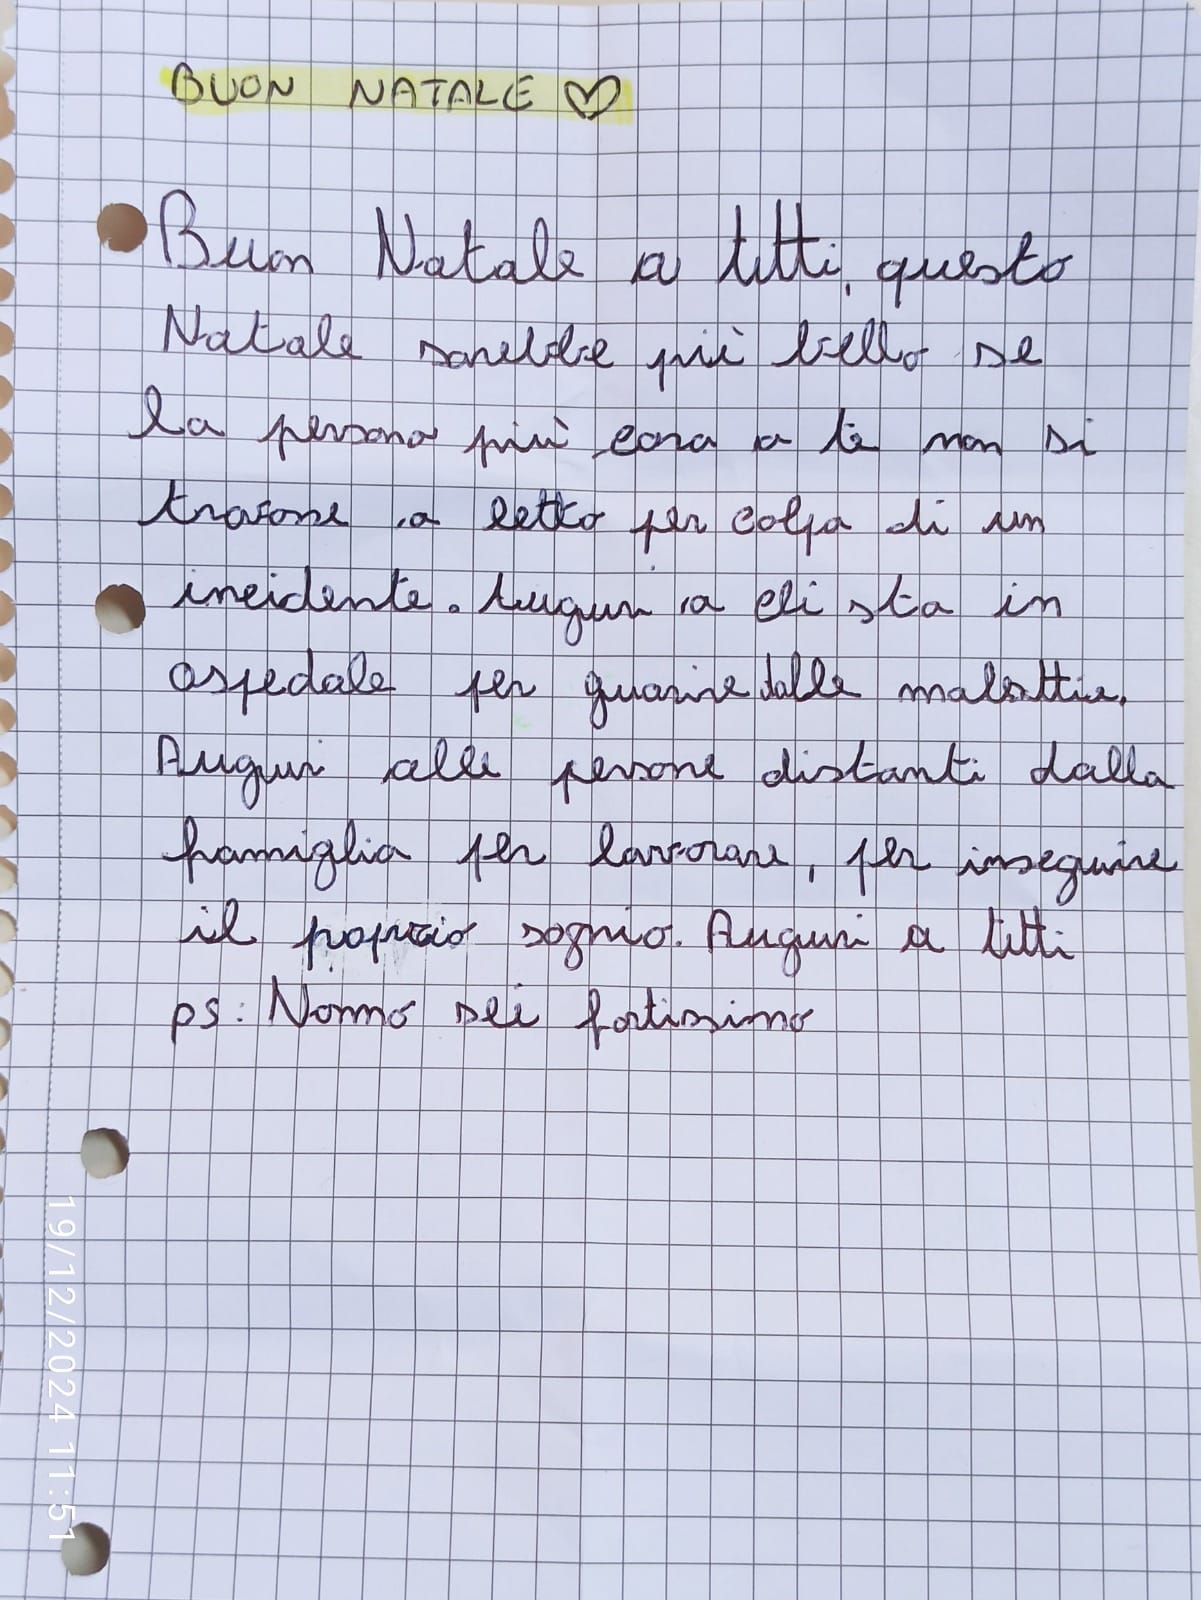 BUON NATALE ♡
Buon Natale a tutti, questo
Natale sarebbe più bello se
la persona più cara a te non si
trovasse a letto per colpa di un
incidente. Auguri a chi sta in
ospedale per guarire dalle malattie.
Auguri alle persone distanti dalla
famiglia per lavorare, per inseguire
il proprio sogno. Auguri a tutti
ps: Nonno sei fortissimo
19/12/2024 11:51